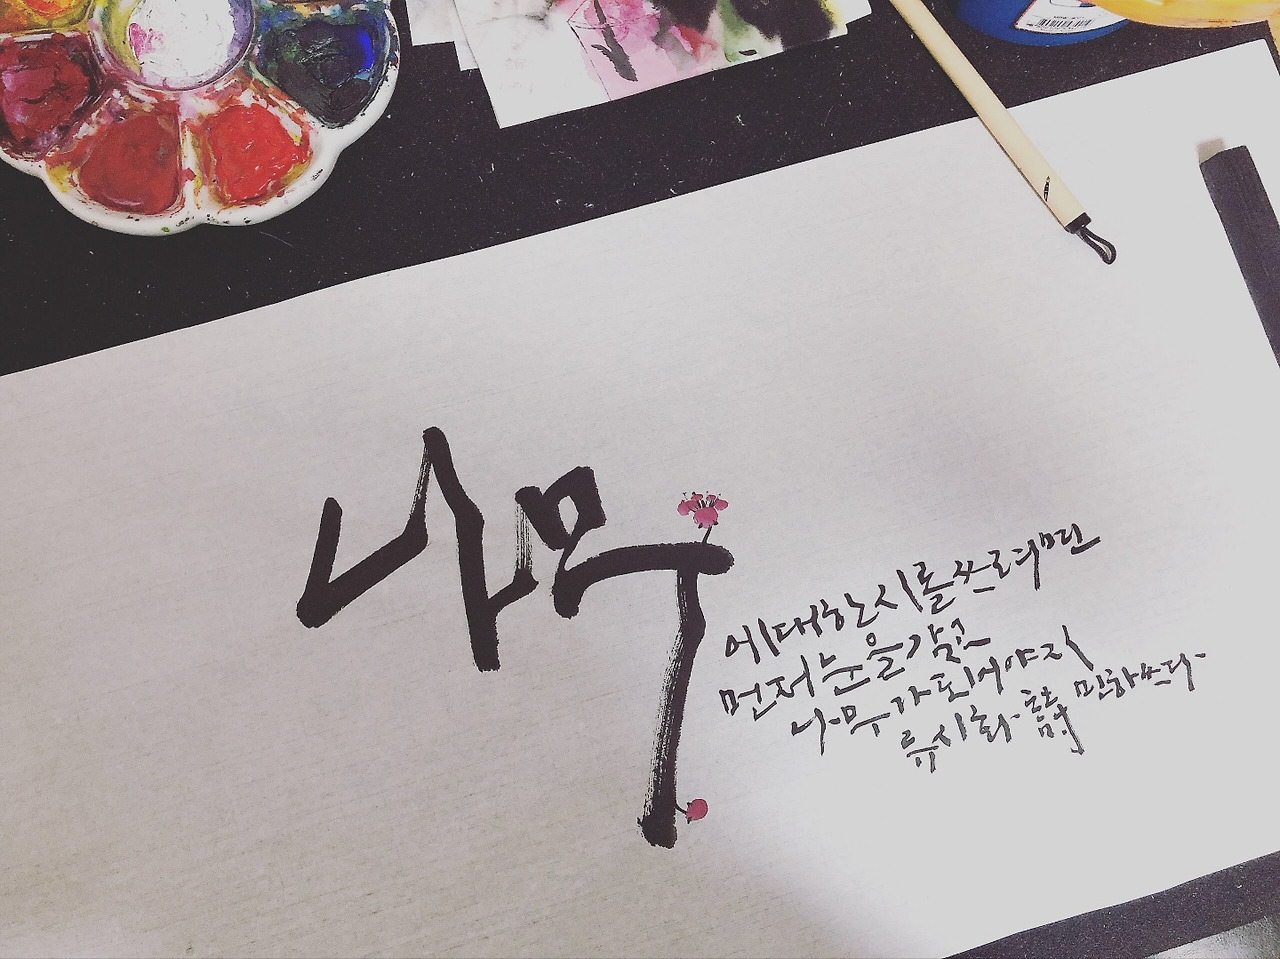 나무
에 대한 시를 쓰려면
먼저 눈을 감고
나무가 되어야지
류시화. 詩 민하쓰다.